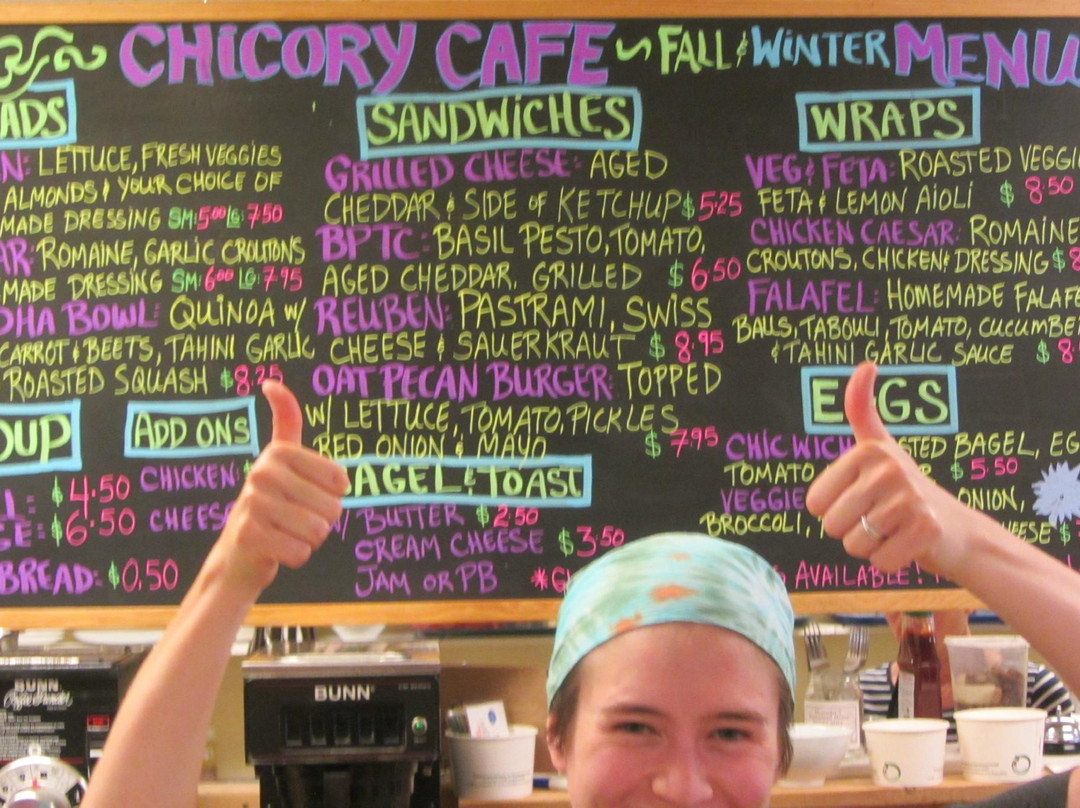 CHICORY CAFE ~ FALL & WINTER MENU
ADS
N: LETTUCE, FRESH VEGGIES
ALMONDS & YOUR CHOICE OF
MADE DRESSING SM: 5.00 LG: 7.50
AR: ROMAINE, GARLIC CROUTONS
MADE DRESSING SM: 6.00 LG: 7.95
DHA BOWL: QUINOA W/
CARROT & BEETS, TAHINI GARLIC
ROASTED SQUASH $8.25
OUP
$4.50
$6.50
BREAD: $0.50
ADD ONS
CHICKEN:
CHEESE
SANDWICHES
GRILLED CHEESE: AGED
CHEDDAR & SIDE OF KETCHUP $5.25
BPTC: BASIL PESTO, TOMATO,
AGED CHEDDAR, GRILLED $6.50
REUBEN: PASTRAMI, SWISS
CHEESE & SAUERKRAUT $8.95
OAT PECAN BURGER: TOPPED
W/ LETTUCE, TOMATO, PICKLES
RED ONION & MAYO $7.95
BAGEL & TOAST
W/ BUTTER $2.50
CREAM CHEESE $3.50
JAM OR PB *G
WRAPS
VEG & FETA: ROASTED VEGGI
FETA & LEMON AIOLI $8.50
CHICKEN CAESAR: ROMAINE
CROUTONS, CHICKEN & DRESSING $8
FALAFEL: HOMEMADE FALAFE
BALLS, TABOULI, TOMATO, CUCUMBE
& TAHINI GARLIC SAUCE $8
EGGS
CHIC WICH STED BAGEL, EG
TOMATO $5.50
VEGGIE ONION,
BROCCOLI, HEESE $
AVAILABLE!
BUNN
BUNN